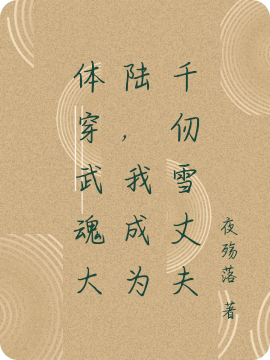 体穿武魂大
陆，我成为
千仞雪丈夫
夜殇落 著